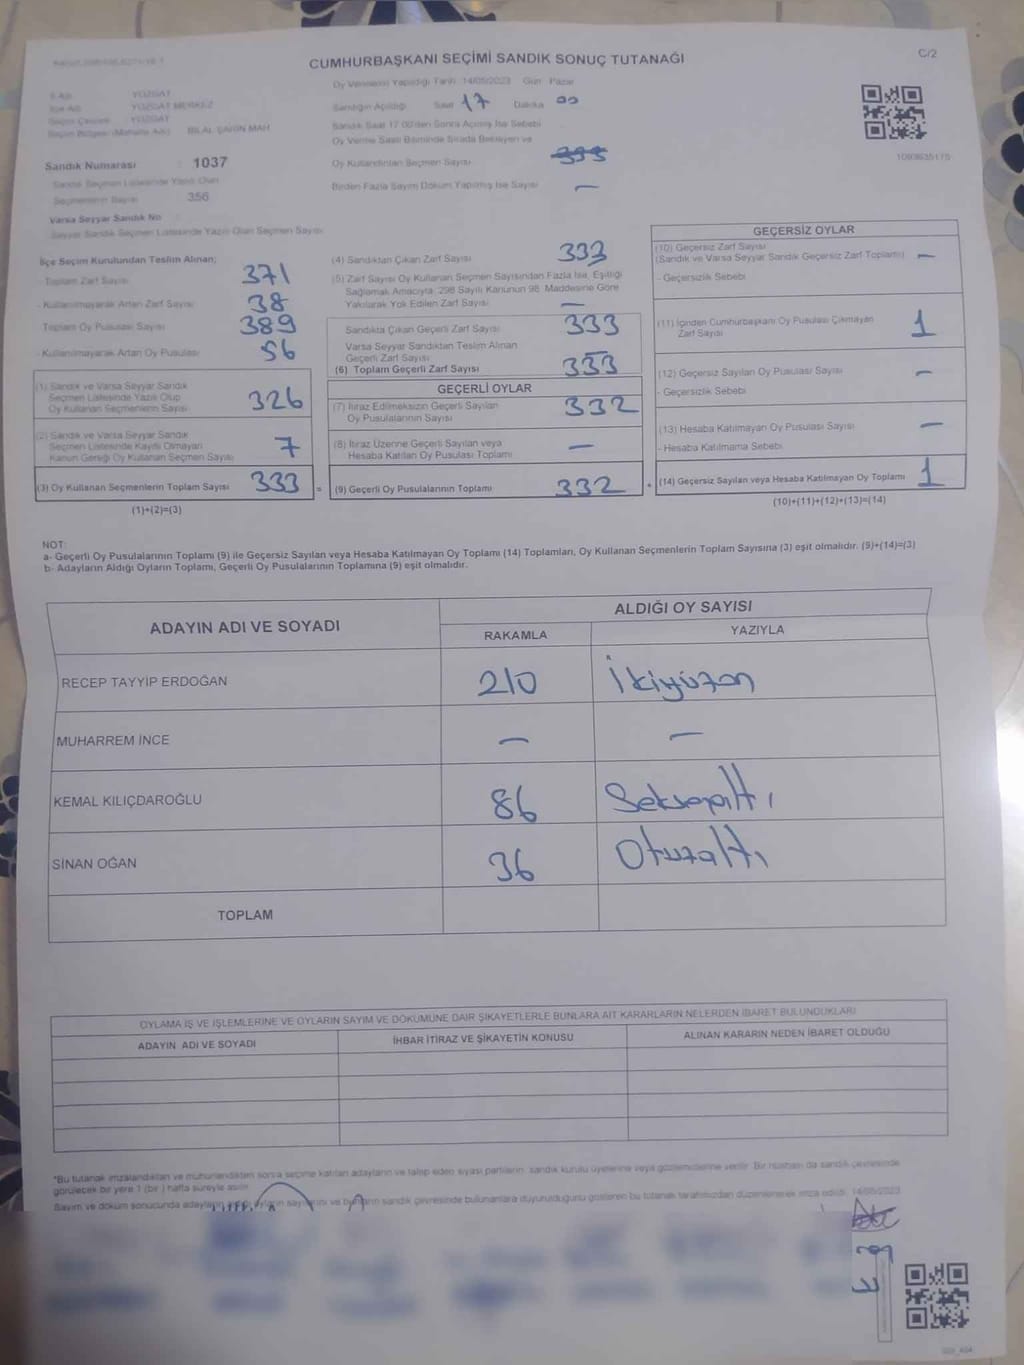 CUMHURBAŞKANI SEÇİMİ SANDIK SONUÇ TUTANAĞI
C/2
Oy Vermenin Yapıldığı Tarih 14/05/2023 Gün Pazar
YOZGAT
YOZGAT MERKEZ
YOZGAT
BİLAL ŞAHİN MAH
Sandığın Açıldığı Saat 17 Dakika 00
Sandık Saat 17.00'den Sonra Açılmış İse Sebebi
Oy Verme Saati Bitiminde Sırada Bekleyen ve
Oy Kullandırılan Seçmen Sayısı
Birden Fazla Sayım Döküm Yapılmış İse Sayısı —
Sandık Numarası : 1037
Sandık Seçmen Listesinde Yazılı Olan
Seçmenlerin Sayısı 356
Varsa Seyyar Sandık No
Seyyar Sandık Seçmen Listesinde Yazılı Olan Seçmen Sayısı
İlçe Seçim Kurulundan Teslim Alınan;
Toplam Zarf Sayısı 371
- Kullanılmayarak Artan Zarf Sayısı 38
Toplam Oy Pusulası Sayısı 389
- Kullanılmayarak Artan Oy Pusulası 56
(1) Sandık ve Varsa Seyyar Sandık
Seçmen Listesinde Yazılı Olup
Oy Kullanan Seçmenlerin Sayısı 326
(2) Sandık ve Varsa Seyyar Sandık
Seçmen Listesinde Kayıtlı Olmayan
Kanun Gereği Oy Kullanan Seçmen Sayısı 7
(3) Oy Kullanan Seçmenlerin Toplam Sayısı 333 =
(1)+(2)=(3)
(4) Sandıktan Çıkan Zarf Sayısı 333
(5) Zarf Sayısı Oy Kullanan Seçmen Sayısından Fazla İse, Eşitliği
Sağlamak Amacıyla, 298 Sayılı Kanunun 98. Maddesine Göre
Yakılarak Yok Edilen Zarf Sayısı —
Sandıkta Çıkan Geçerli Zarf Sayısı 333
Varsa Seyyar Sandıktan Teslim Alınan
Geçerli Zarf Sayısı —
(6) Toplam Geçerli Zarf Sayısı 333
GEÇERLİ OYLAR
(7) İtiraz Edilmeksizin Geçerli Sayılan
Oy Pusulalarının Sayısı 332
(8) İtiraz Üzerine Geçerli Sayılan veya
Hesaba Katılan Oy Pusulası Toplamı —
(9) Geçerli Oy Pusulalarının Toplamı 332 +
GEÇERSİZ OYLAR
(10) Geçersiz Zarf Sayısı
(Sandık ve Varsa Seyyar Sandık Geçersiz Zarf Toplamı) —
- Geçersizlik Sebebi
(11) İçinden Cumhurbaşkanı Oy Pusulası Çıkmayan
Zarf Sayısı 1
(12) Geçersiz Sayılan Oy Pusulası Sayısı —
- Geçersizlik Sebebi
(13) Hesaba Katılmayan Oy Pusulası Sayısı —
- Hesaba Katılmama Sebebi
(14) Geçersiz Sayılan veya Hesaba Katılmayan Oy Toplamı 1
(10)+(11)+(12)+(13)=(14)
NOT:
a- Geçerli Oy Pusulalarının Toplamı (9) ile Geçersiz Sayılan veya Hesaba Katılmayan Oy Toplamı (14) Toplamları, Oy Kullanan Seçmenlerin Toplam Sayısına (3) eşit olmalıdır. (9)+(14)=(3)
b- Adayların Aldığı Oyların Toplamı, Geçerli Oy Pusulalarının Toplamına (9) eşit olmalıdır.
ADAYIN ADI VE SOYADI
ALDIĞI OY SAYISI
RAKAMLA YAZIYLA
RECEP TAYYİP ERDOĞAN 210 İkiyüzon
MUHARREM İNCE — —
KEMAL KILIÇDAROĞLU 86 Seksenaltı
SİNAN OĞAN 36 Otuzaltı
TOPLAM
OYLAMA İŞ VE İŞLEMLERİNE VE OYLARIN SAYIM VE DÖKÜMÜNE DAİR ŞİKAYETLERLE BUNLARA AİT KARARLARIN NELERDEN İBARET BULUNDUKLARI
ADAYIN ADI VE SOYADI İHBAR İTİRAZ VE ŞİKAYETİN KONUSU ALINAN KARARIN NEDEN İBARET OLDUĞU
*Bu tutanak imzalandıktan ve mühürlendikten sonra seçime katılan adayların ve talep eden siyasi partilerin sandık kurulu üyelerine veya gözlemcilerine verilir. Bir nüshası da sandık çevresinde
görülecek bir yere 1 (bir) hafta süreyle asılır.
Sayım ve döküm sonucunda adayların aldığı oyların sayısını ve bunların sandık çevresinde bulunanlara duyurulduğunu gösteren bu tutanak tarafımızdan düzenlenerek imza edildi. 14/05/2023